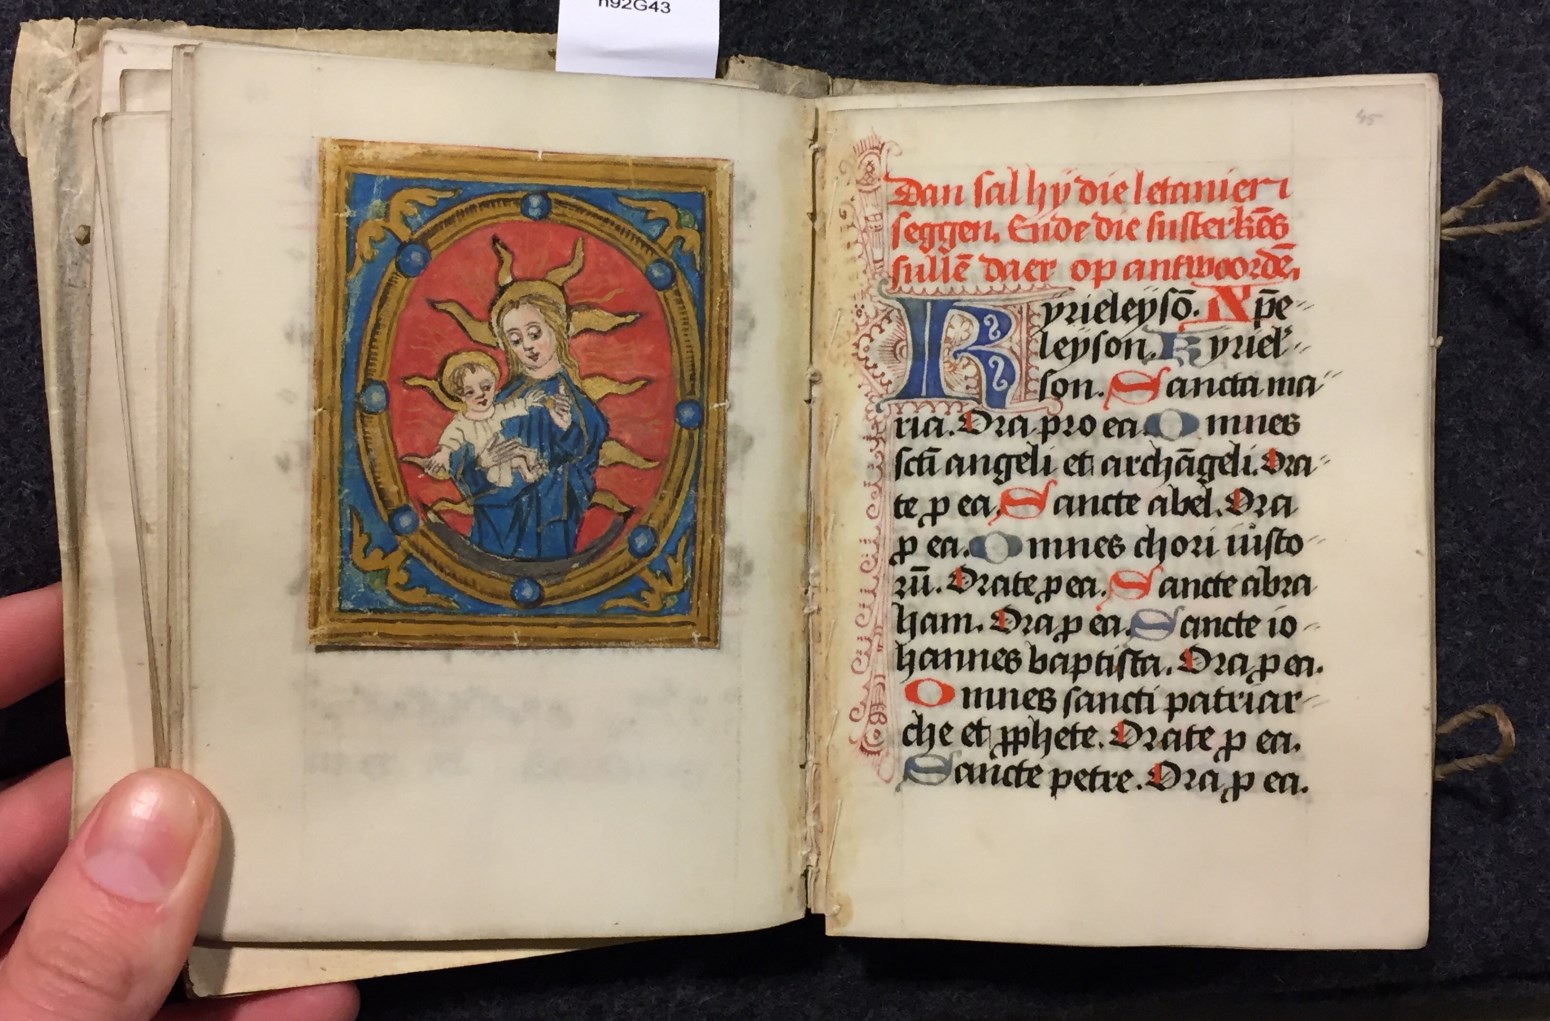 n92G43
45
Dan sal hÿ die letanien
seggen. Ende die susterkēs
sullē daer op antwoordē.
Kyrieleÿsō. Xp̄e-
leÿson. Kyriel-
son. Sancta ma-
ria. Ora pro ea. Omnes
sctī angeli et archāgeli. Ora-
te ꝓ ea. Sancte abel. Ora
ꝓ ea. Omnes chori iusto-
rū. Orate ꝓ ea. Sancte abra
ham. Ora ꝓ ea. Sancte io-
hannes baptista. Ora ꝓ ea.
Omnes sancti patriar-
che et ꝓphete. Orate ꝓ ea.
Sancte petre. Ora ꝓ ea.